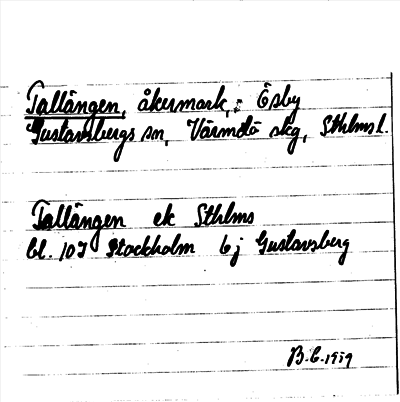 Tallängen, åkermark, : Ösby
Gustavsbergs sn, Värmdö skg, Sthlms l.
Tallängen ek Sthlms
bl. 10I Stockholm bj Gustavsberg
B.C. 1979